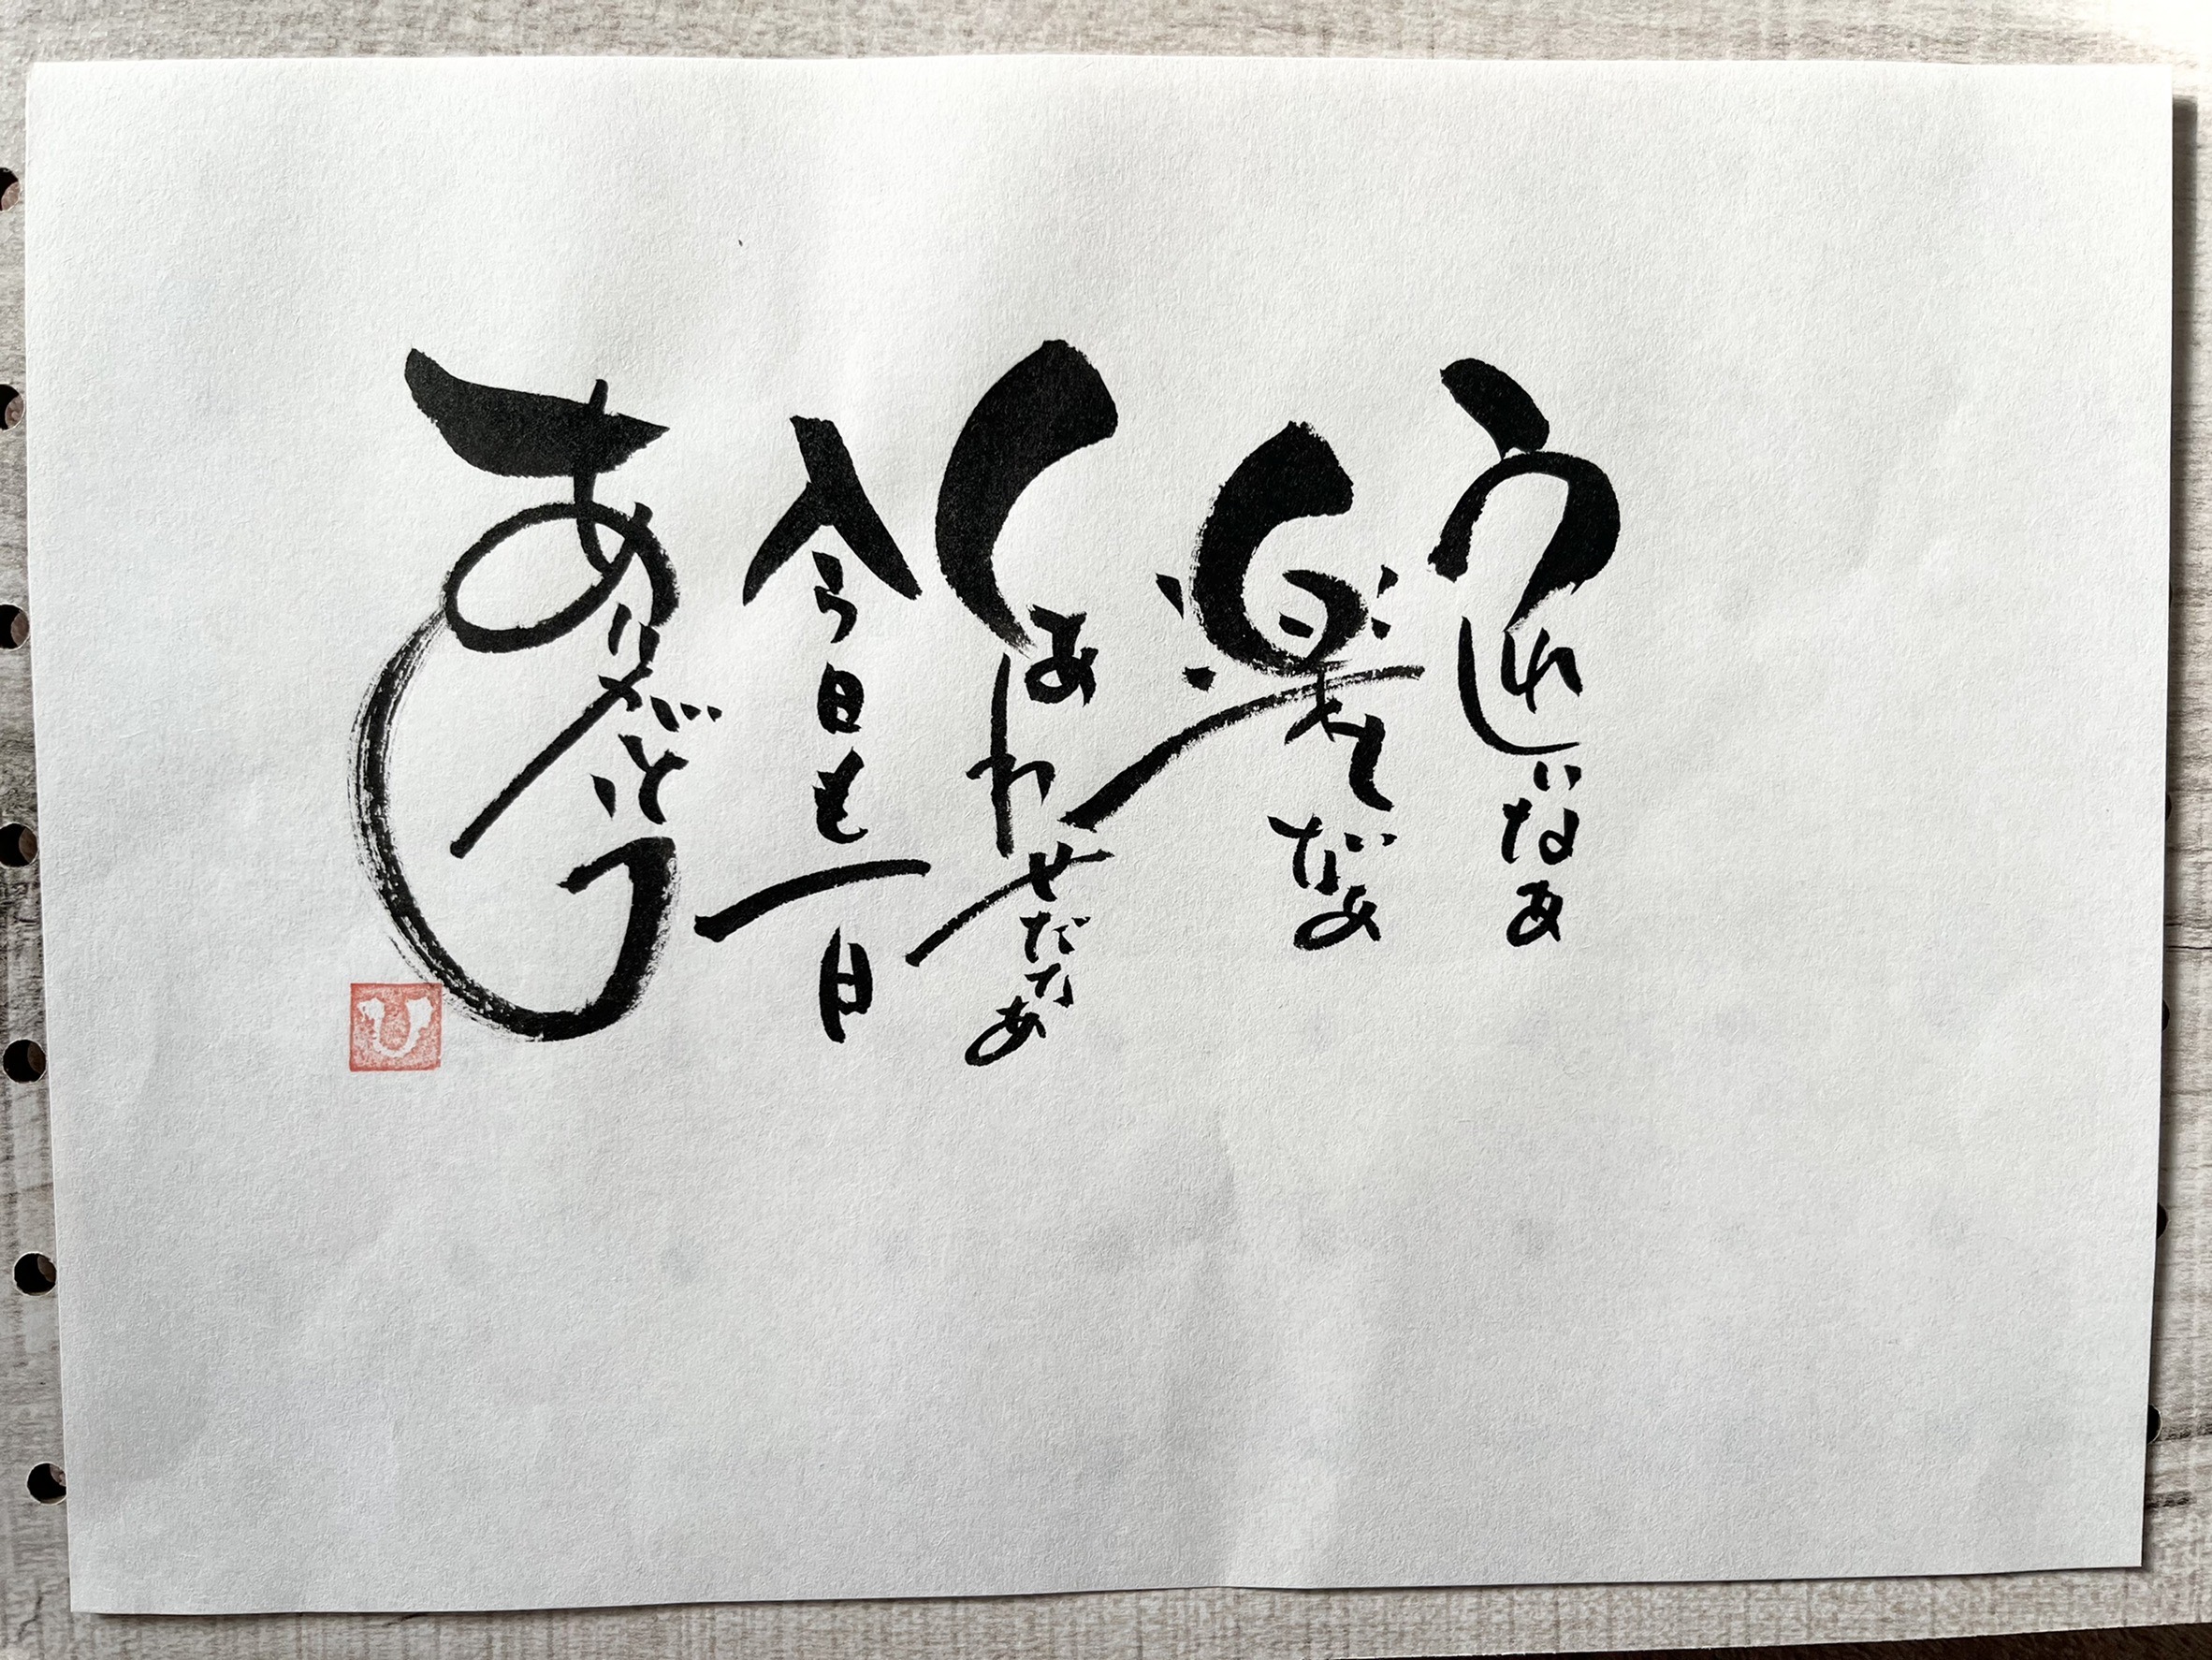 うれしいなあ
楽なあ
しあわせだなあ
今日も一日
ありがとう
ひ